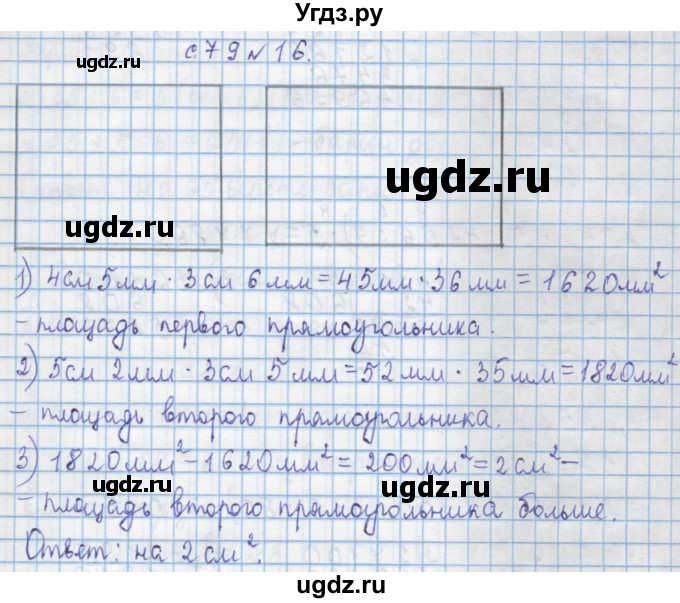 Угдз.ру
с.79 № 16.
ugdz.ru
ugdz.ru
ugdz.ru
1) 4см 5мм · 3см 6мм = 45мм · 36мм = 1620мм²
– площадь первого прямоугольника.
ugdz.ru
2) 5см 2мм · 3см 5мм = 52мм · 35мм = 1820мм²
– площадь второго прямоугольника.
3) 1820мм² – 1620мм² = 200мм² = 2см² –
ugdz.ru
ugdz.ru
– площадь второго прямоугольника больше.
Ответ: на 2см².
ugdz.ru
ugdz.ru